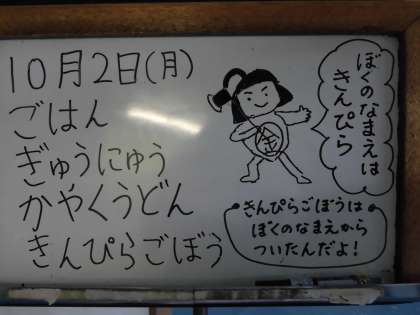 10月2日(月)
ごはん
ぎゅうにゅう
かやくうどん
きんぴらごぼう
ぼくのなまえは
きんぴら
金
きんぴらごぼうは
ぼくのなまえから
ついたんだよ!